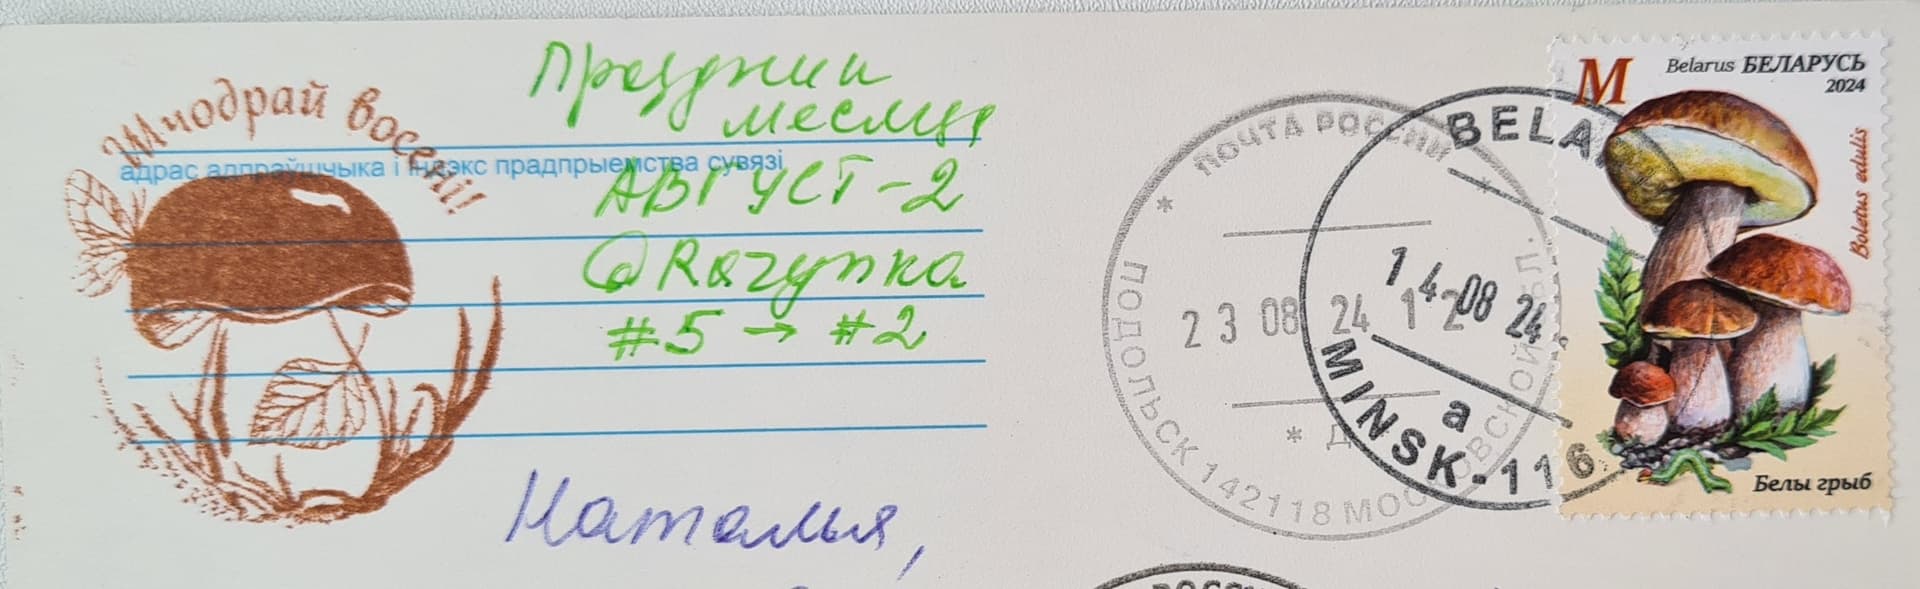 Шчодрай восені!
адрас адпраўшчыка і індэкс прадпрыемства сувязі
Праздники
месяца
АВГУСТ-2
@Ragynka
#5 → #2
Наталья,
ПОЧТА РОССИИ
23 08 24 12
ПОДОЛЬСК 142118 МОСКОВСКОЙ ОБЛ.
BELA
14 08 24
а
MINSK-116
M
Belarus БЕЛАРУСЬ
2024
Boletus edulis
Белы грыб